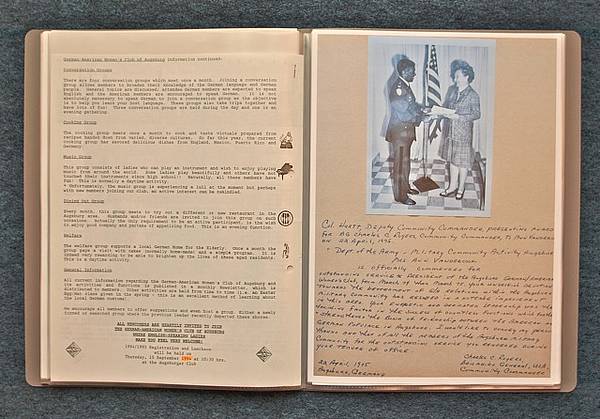 German-American Women's Club of Augsburg Information continued-
Conversation Groups
There are four conversation groups which meet once a month. Joining a conversation
group allows members to broaden their knowledge of the German language and German
people. General topics are discussed; attendee German members are expected to speak
English and the American members are encouraged to speak German. It is not
absolutely necessary to speak German to join a conversation group as the objective
is to help you learn your host language. These groups also take trips together and
have lots of fun! Three conversation groups are held during the day and one is an
evening gathering.
Cooking Group
The cooking group meets once a month to cook and taste victuals prepared from
recipes handed down from varied, diverse cultures. So far this year, the current
cooking group has savored delicious dishes from England, Mexico, Puerto Rico and
Germany.
Music Group
This group consists of ladies who can play an instrument and wish to enjoy playing
music from around the world. Some ladies play beautifully and others have not
touched their instruments since high school! Naturally, all these members have
fun! This is normally a daytime activity.
* Unfortunately, the music group is experiencing a lull at the moment but perhaps
with new members joining our club, an active interest can be rekindled.
Dining Out Group
Every month, this group meets to try out a different or new restaurant in the
Augsburg area. Husbands and/or friends are invited to join this group on such
occasions. Actually the only requirement to be an active participant, is the wish
to enjoy good company and partake of appetizing food. This is an evening function.
Welfare
The welfare group supports a local German Home for the Elderly. Once a month the
group pays a visit with cakes (normally home-made) and a simple program. It is
indeed very rewarding to be able to brighten up the lives of these aged residents.
This is a daytime activity.
General Information
All current information regarding the German-American Women's Club of Augsburg and
its activities and functions is published in a monthly Newsletter, which is
distributed to members. Other activities are held from time to time (i.e. an Easter
Egg/Wax class given in the spring - this is an excellent method of learning about
the local German customs).
We encourage all members to offer suggestions and even host a group. Either a newly
formed or seasoned group where the previous leader recently departed these shores.
ALL NEWCOMERS ARE HEARTILY INVITED TO JOIN
THE GERMAN-AMERICAN WOMEN'S CLUB OF AUGSBURG
WHERE ENGLISH-SPEAKING LADIES
MAKE YOU FEEL VERY WELCOME!
1994/1995 Registration and Luncheon
will be held on
Thursday, 15 September 1994 at 10:30 hrs.
at the Augsburger Club
Col. Deputy Community Commander, presenting award
for BG Charles C. Rogers, Community Commander, to Ann
on 22 April, 1975
"Dept of the Army - Military Community Activity Augsburg
Mrs Ann
is officially commended for
outstanding service as President of the Augsburg German/American
Women's Club, from March 1974 thru March 1975. Your unselfish devotion
towards the development of relations within the Augsburg
Military Community has resulted in a notable improvement
in this area. Your diligence and dynamic leadership was the
for the success of countless functions which further
strengthened the bonds of friendship between the American and
German families in Augsburg. I would like to convey my personal
thanks and that of all the members of the Augsburg Military
Community for the outstanding service you rendered during
your tenure of office
Charles C. Rogers,
Brigadier General, USA
Community Commander
22 April, 1975
Augsburg, Germany